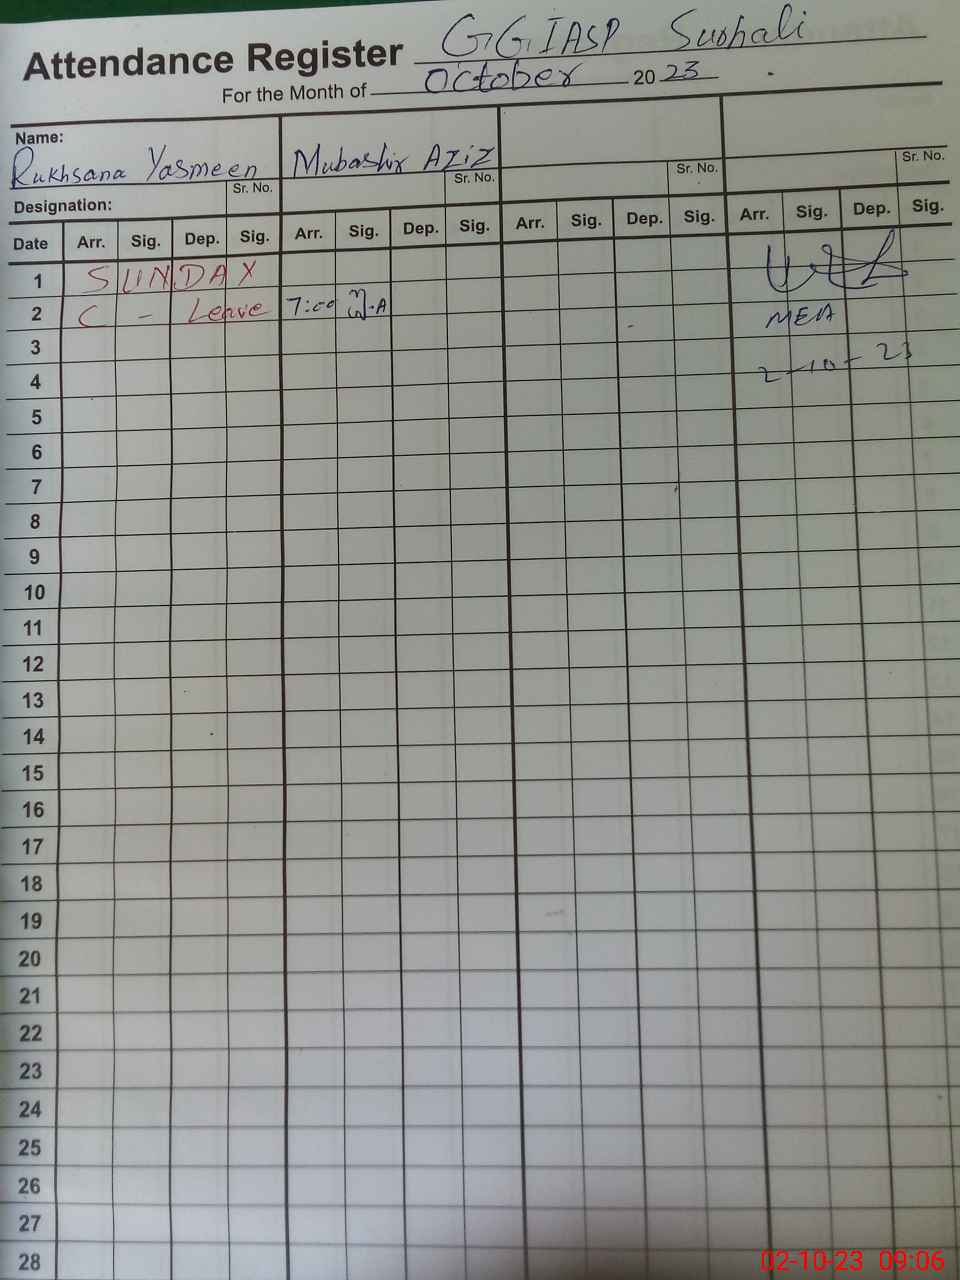 Attendance Register GGIASP Suohali
For the Month of October 2023
Name:
Rukhsana Yasmeen Mubashir AZIZ
Sr. No. Sr. No. Sr. No. Sr. No.
Designation:
Date Arr. Sig. Dep. Sig. Arr. Sig. Dep. Sig. Arr. Sig. Dep. Sig. Arr. Sig. Dep. Sig.
1 SUNDAY
2 C - Leave 7:00 M.A MEA
3
4 2-10-23
5
6
7
8
9
10
11
12
13
14
15
16
17
18
19
20
21
22
23
24
25
26
27
28
02-10-23 09:06